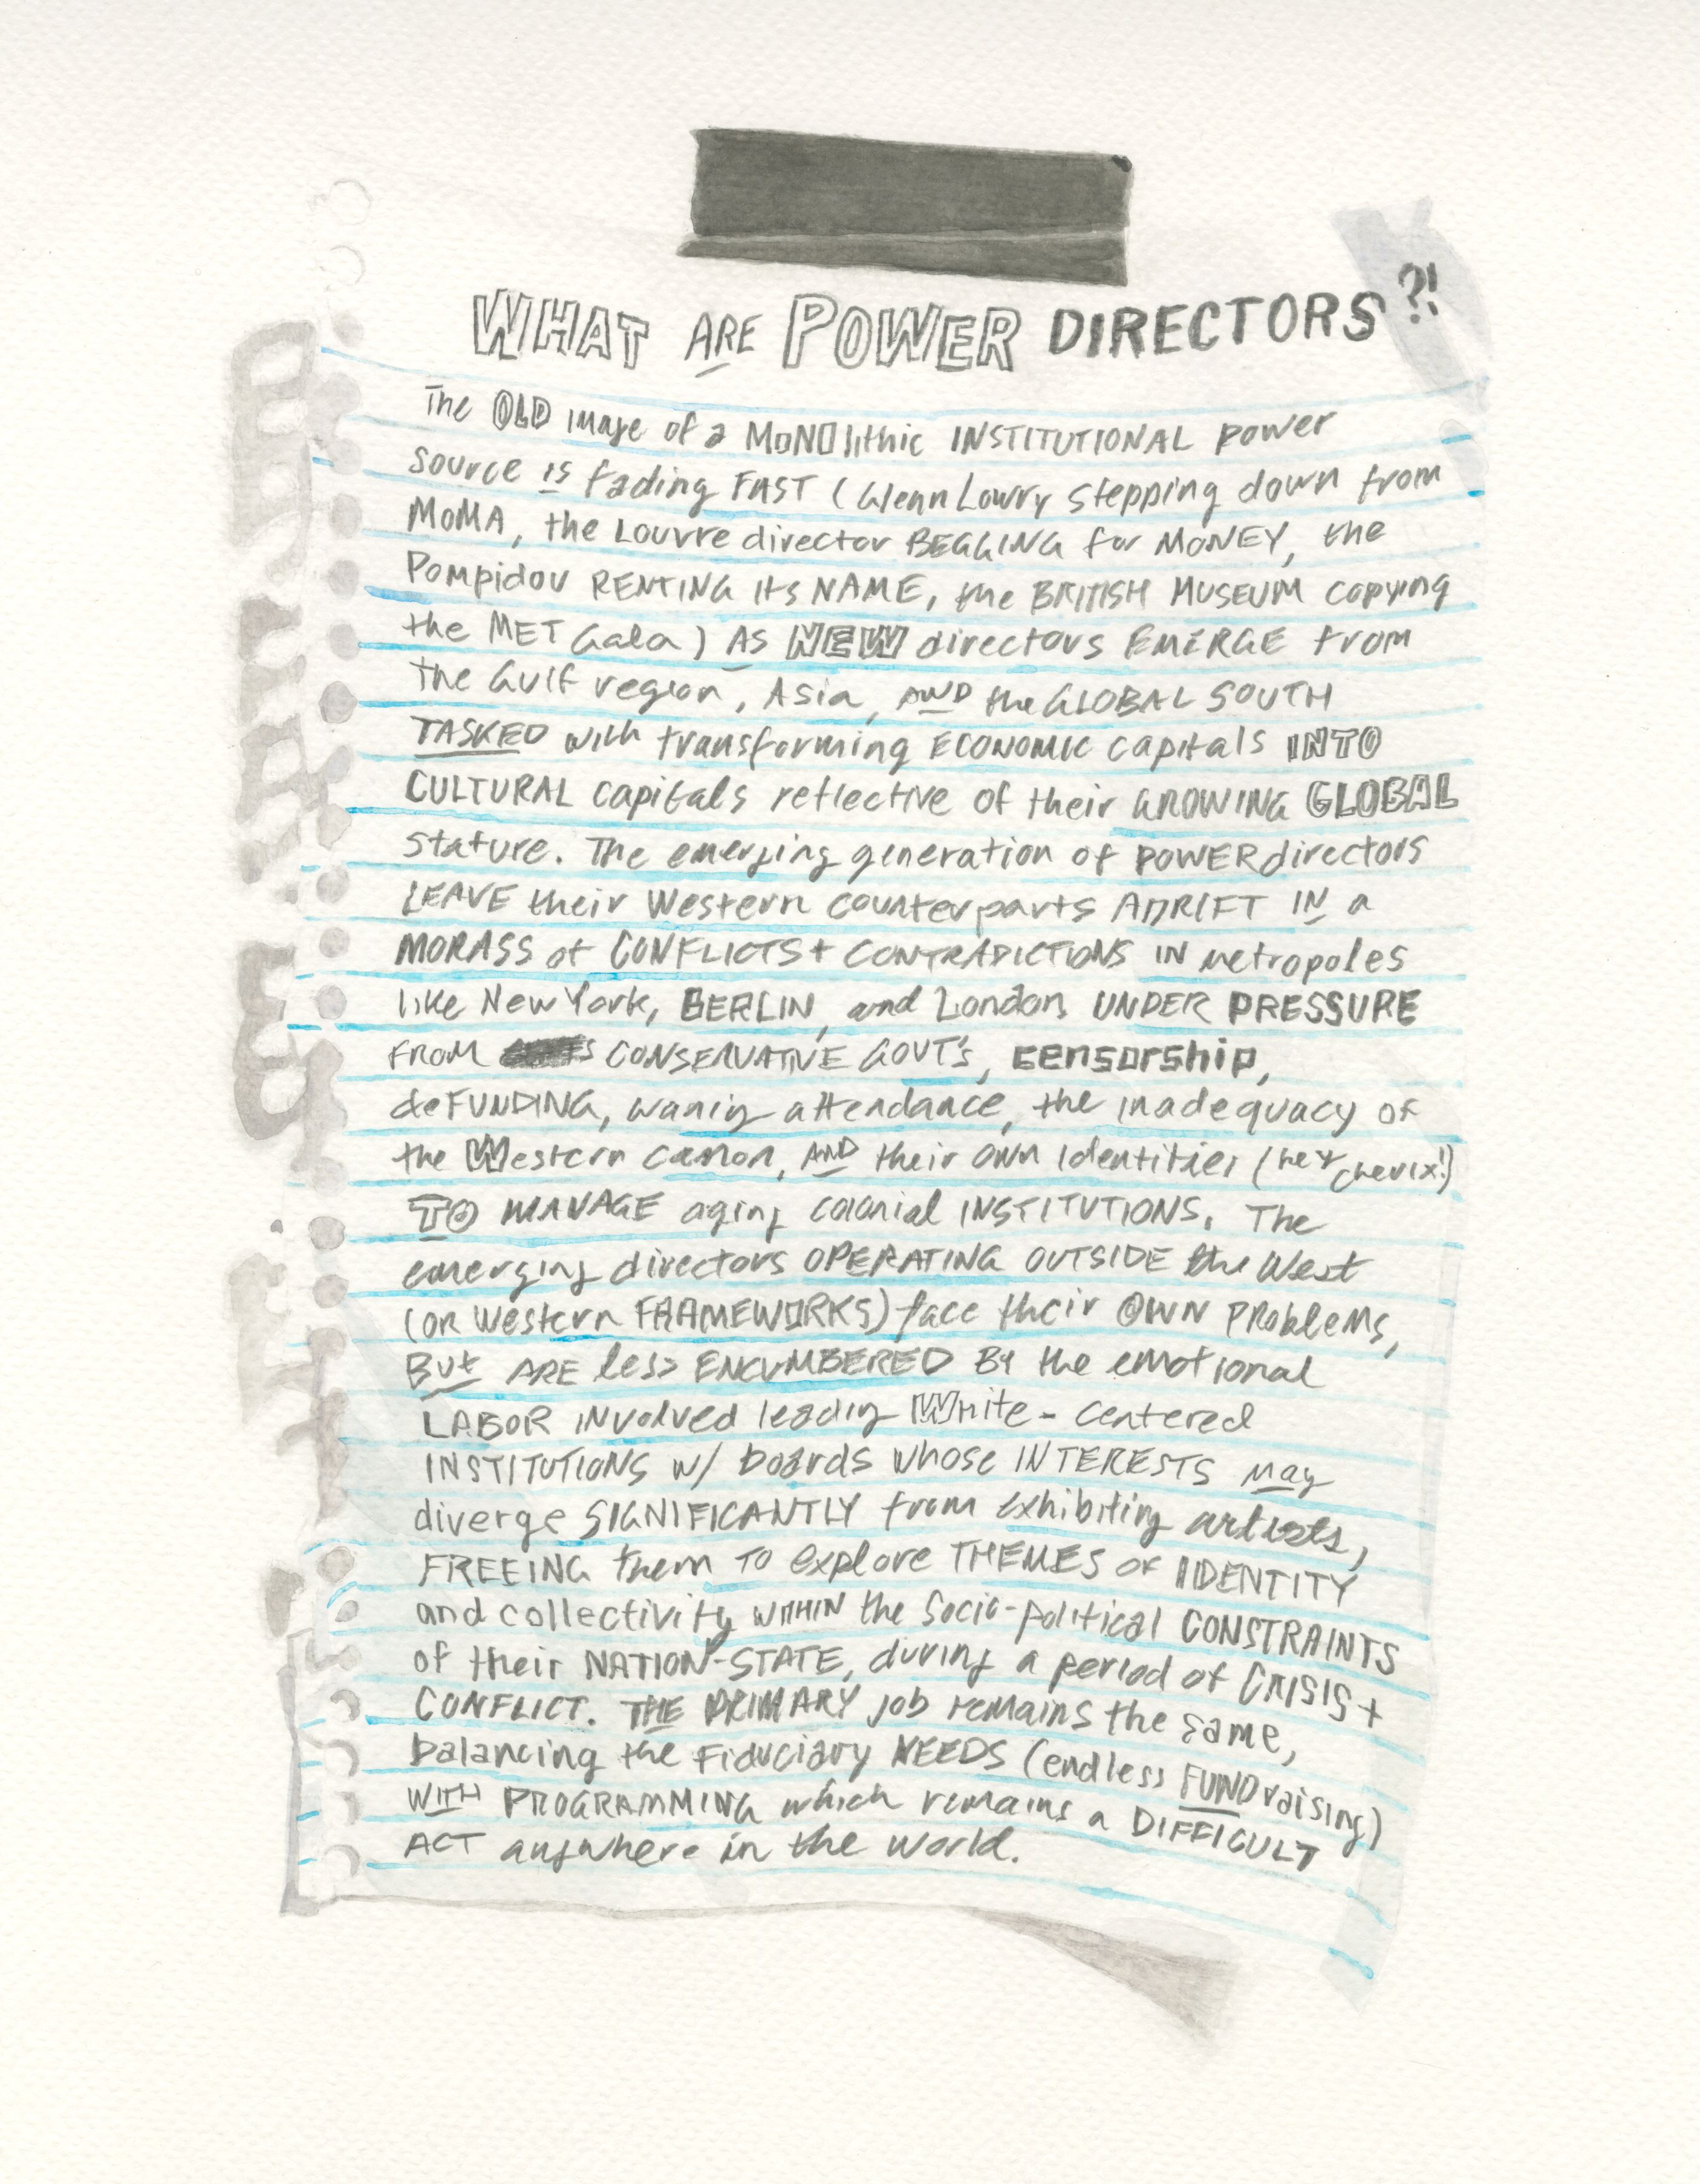 WHAT ARE POWER DIRECTORS?!
The OLD image of a MONOlithic INSTITUTIONAL power
source is fading FAST (Glenn Lowry stepping down from
MoMA, the Louvre director BEGGING for MONEY, the
Pompidou RENTING its NAME, the BRITISH MUSEUM copying
the MET Gala) AS NEW directors EMERGE from
the Gulf region, Asia, AND the GLOBAL SOUTH
TASKED with transforming ECONOMIC capitals INTO
CULTURAL capitals reflective of their GROWING GLOBAL
stature. The emerging generation of POWER directors
LEAVE their Western counterparts ADRIFT IN a
MORASS of CONFLICTS + CONTRADICTIONS IN metropoles
like New York, BERLIN, and London UNDER PRESSURE
FROM CONSERVATIVE GOVT'S, censorship,
deFUNDING, waning attendance, the inadequacy of
the Western canon, AND their own identities (hey cherix!)
TO MANAGE aging colonial INSTITUTIONS. The
emerging directors OPERATING OUTSIDE the West
(OR Western FRAMEWORKS) face their OWN PRoblems,
But ARE less ENCUMBERED BY the emotional
LABOR INvolved leading White-centered
INSTITUTIONS w/ boards whose INTERESTS may
diverge SIGNIFICANTLY from exhibiting artists,
FREEING them TO explore THEMES of IDENTITY
and collectivity WITHIN the Socio-political CONSTRAINTS
of their NATION-STATE, during a period of CRISIS +
CONFLICT. THE PRIMARY job remains the same,
balancing the Fiduciary NEEDS (endless FUNDraising)
WITH PROGRAMMING which remains a DIFFICULT
ACT anywhere in the world.